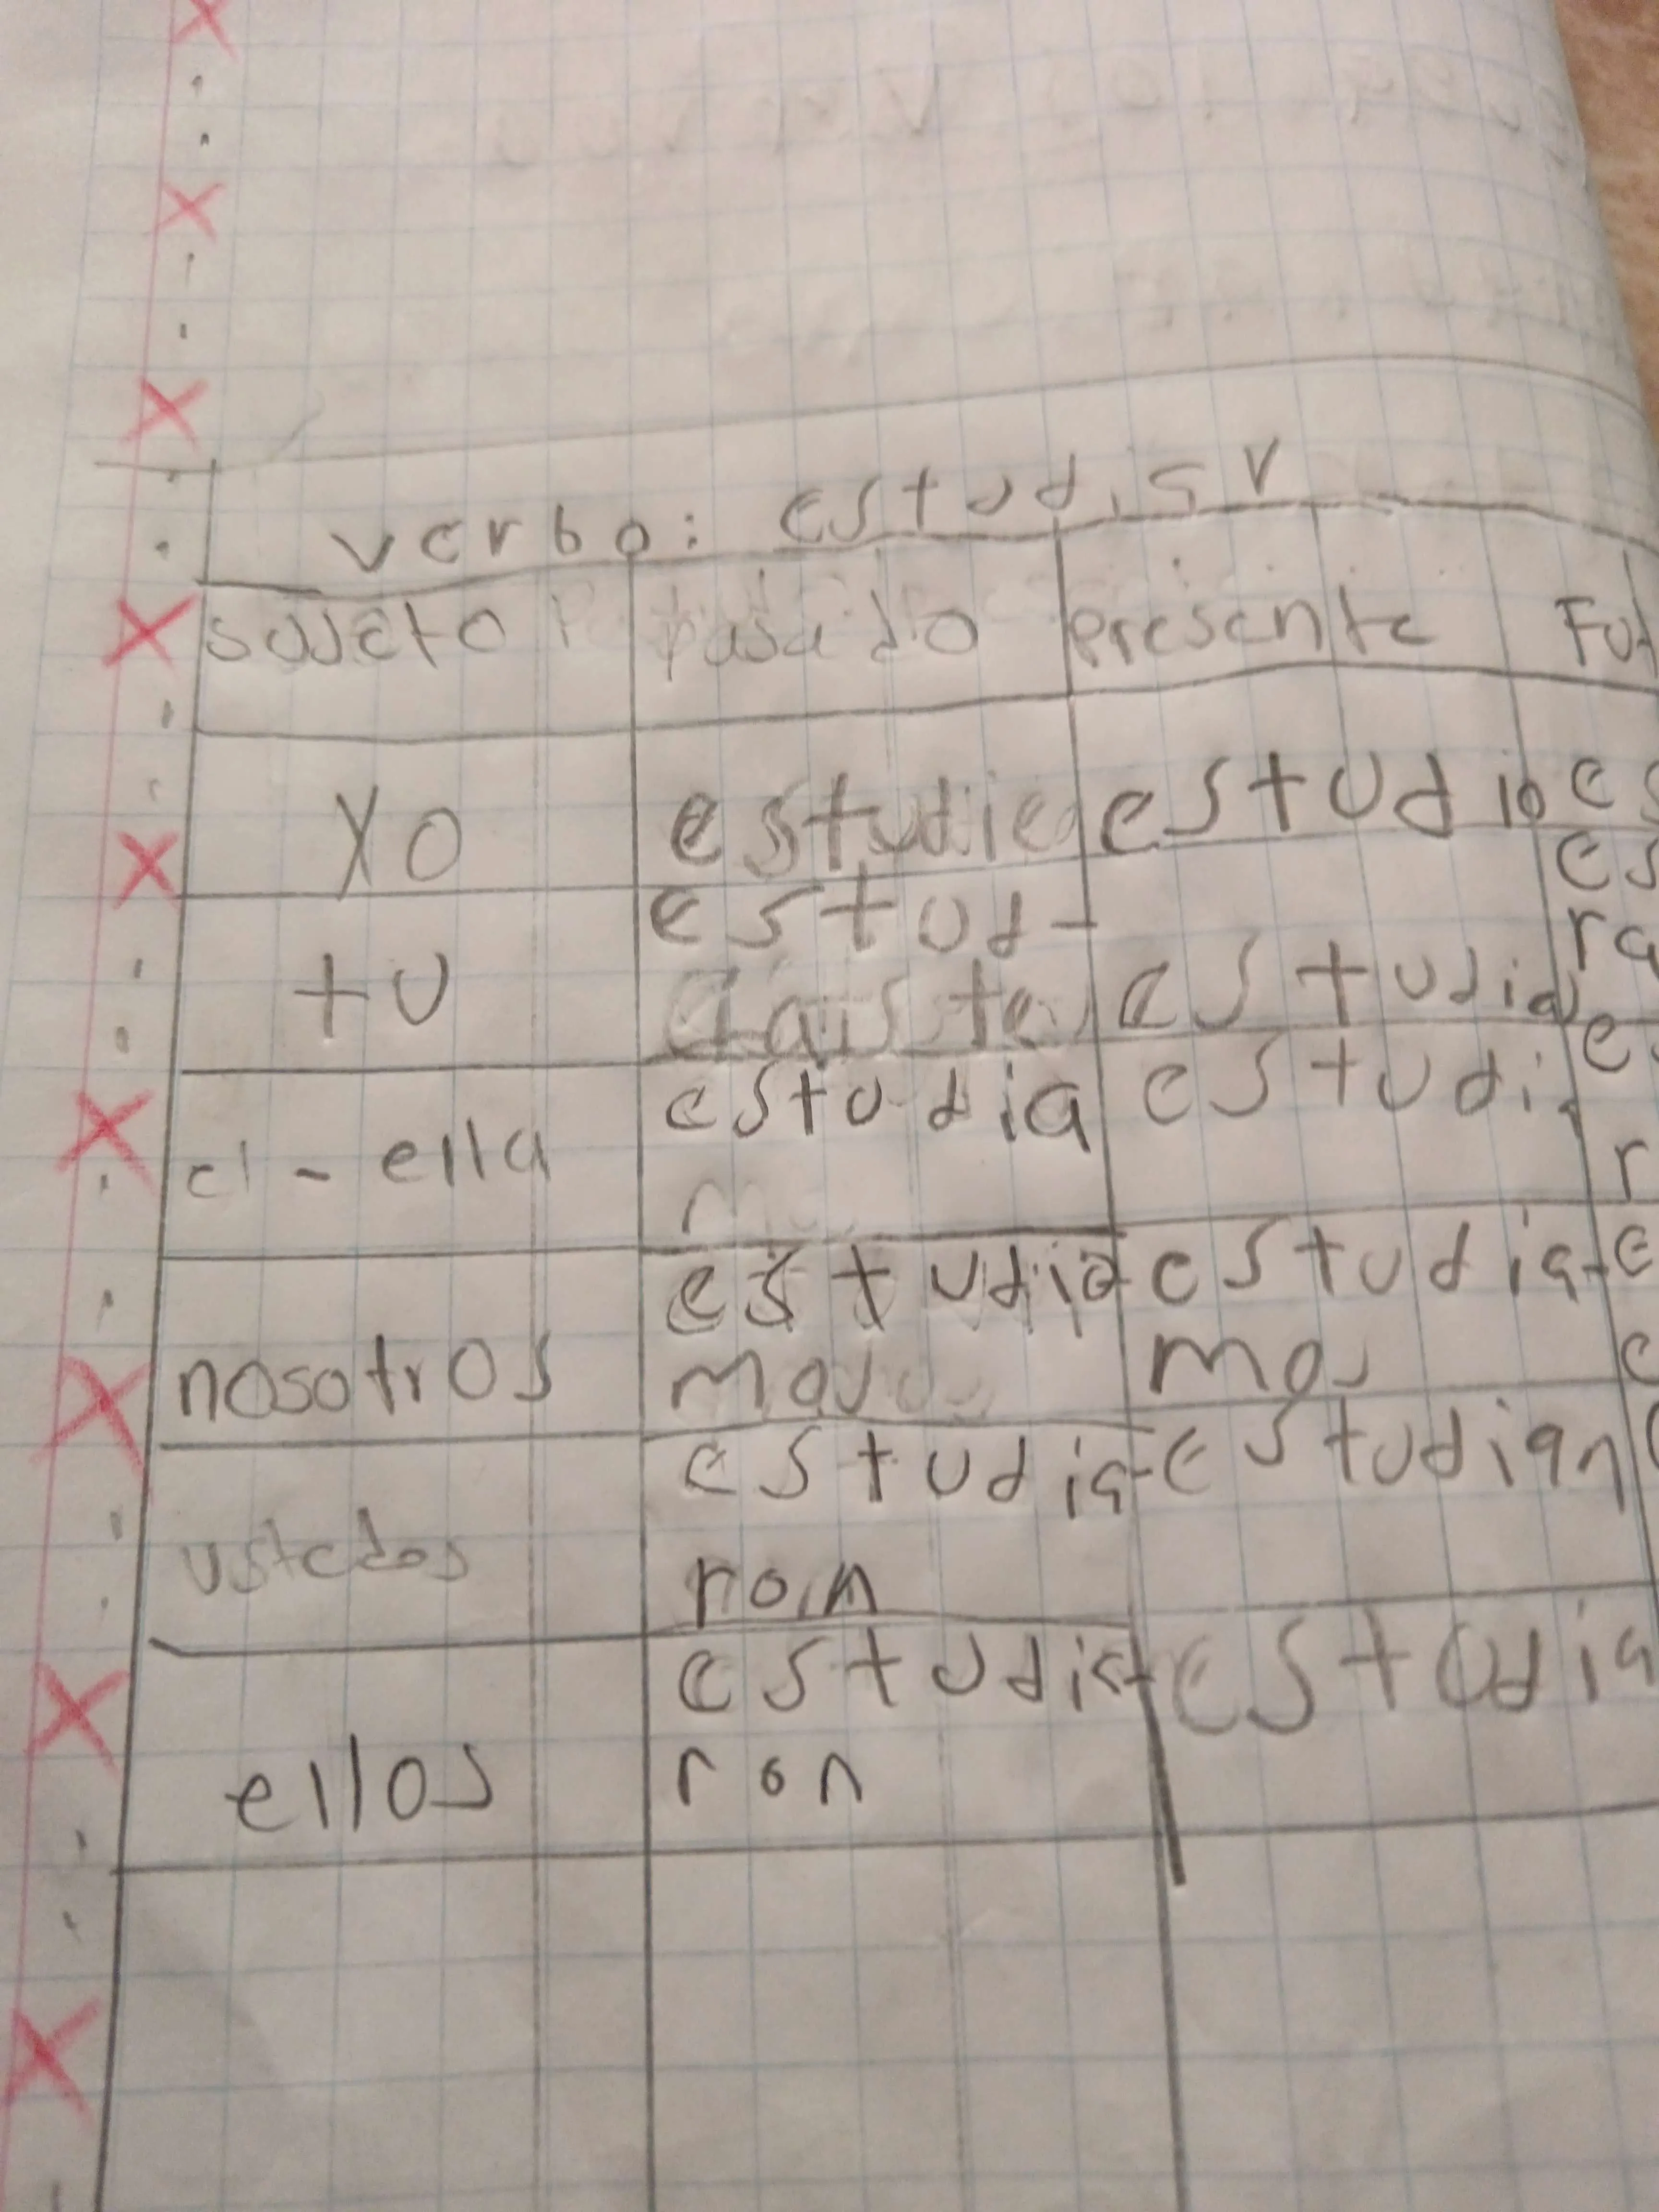 verbo: estudiar
sujeto pasado presente Fut
yo estudie estudio es
tu estud- estudia es
diaste ra
el - ella estudia estudi e
r
nosotros estudia- estudia- e
mos mos e
ustedes estudia- estudian
ron
ellos estudia- estudia
ron